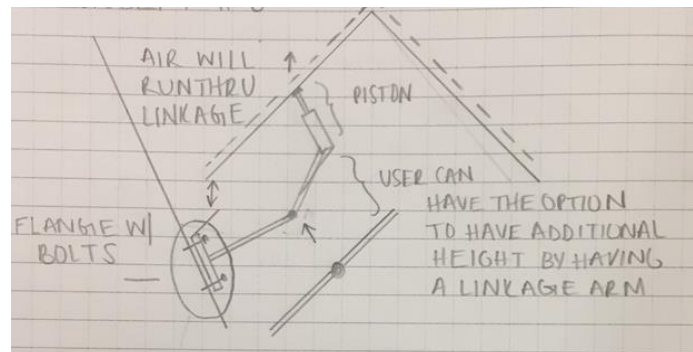 AIR WILL
RUNTHRU
LINKAGE
PISTON
USER CAN
HAVE THE OPTION
TO HAVE ADDITIONAL
HEIGHT BY HAVING
A LINKAGE ARM
FLANGE W/
BOLTS